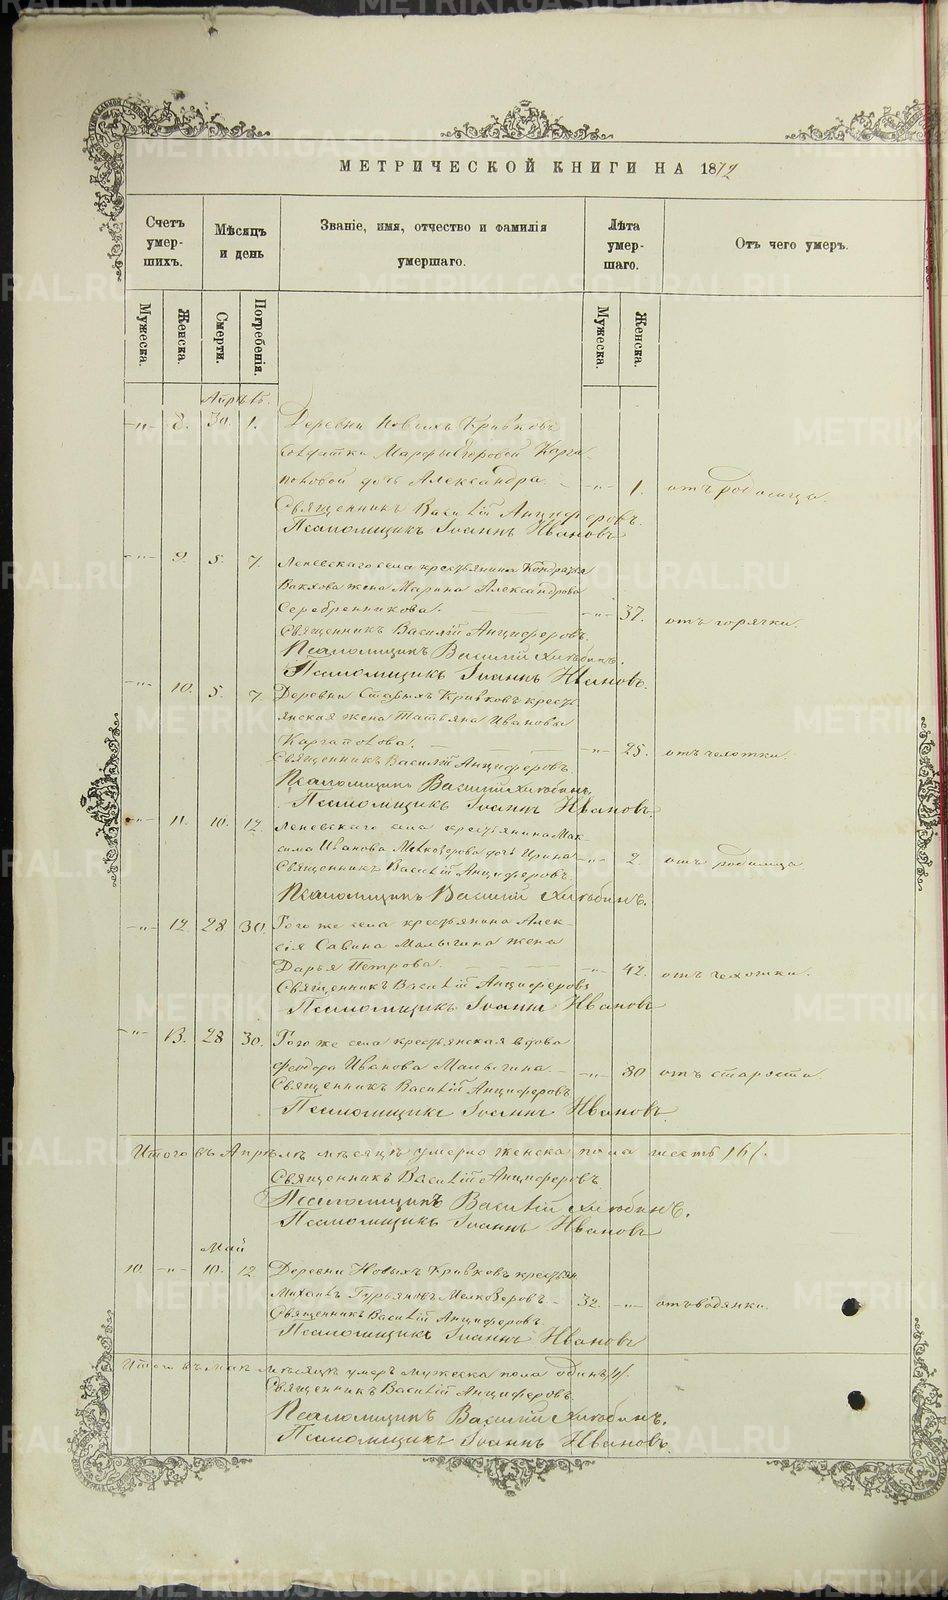 МЕТРИЧЕСКОЙ КНИГИ НА 1872
Счетъ умер-шихъ.
Мѣсяцъ и день
Званіе, имя, отчество и фамилія умершаго.
Лѣта умер-шаго.
Отъ чего умеръ.
Мужеска.
Женска.
Смерти.
Погребенія.
Мужеска.
Женска.
Апрѣль.
-"- 8. 30. 1. Деревни Новыхъ Кривковъ
солдатки Марфы Егоровой Карга-
половой дочь Александра -"- 1. отъ родимца.
Священникъ Василій Анциферовъ.
Псаломщикъ Іоаннъ Ивановъ
-"- 9. 5. 7. Леневскаго села крестьянина Кондратья
жена Марина Александрова
Серебренникова. -"- 37. отъ горячки.
Священникъ Василій Анциферовъ.
Псаломщикъ Василій Хитобинъ.
Псаломщикъ Іоаннъ Ивановъ.
-"- 10. 5. 7. Деревни Старыхъ Кривковъ кресть-
янская жена Татьяна Иванова
Каргаполова. -"- 25. отъ чахотки.
Священникъ Василій Анциферовъ.
Псаломщикъ Василій Хитобинъ.
Псаломщикъ Іоаннъ Ивановъ.
-"- 11. 10. 12. Леневскаго села крестьянина Мак-
сима Иванова Мелкозерова дочь Ирина -"- 2 отъ родимца
Священникъ Василій Анциферовъ.
Псаломщикъ Василій Хитобинъ.
-"- 12. 28 30. Того же села крестьянина Алек-
сія Савина Малыгина жена
Дарья Петрова. -"- 42. отъ чахотки.
Священникъ Василій Анциферовъ
Псаломщикъ Іоаннъ Ивановъ
-"- 13. 28 30. Того же села крестьянская вдова
Феодора Иванова Малыгина. -"- 80 отъ старости.
Священникъ Василій Анциферовъ
Псаломщикъ Іоаннъ Ивановъ
Итого въ Апрѣлѣ мѣсяцѣ умерло женска пола шесть /6/.
Священникъ Василій Анциферовъ
Псаломщикъ Василій Хитобинъ.
Псаломщикъ Іоаннъ Ивановъ
Май
10. -"- 10. 12 Деревни Новыхъ Кривковъ крестьян.
Михаилъ Гурьяновъ Мелкозеровъ. 32. -"- отъ водянки.
Священникъ Василій Анциферовъ.
Псаломщикъ Іоаннъ Ивановъ
Итого въ Маѣ мѣсяцѣ умеръ мужеска пола одинъ /1/.
Священникъ Василій Анциферовъ
Псаломщикъ Василій Хитобинъ.
Псаломщикъ Іоаннъ Ивановъ.
METRIKI.GASO-URAL.RU